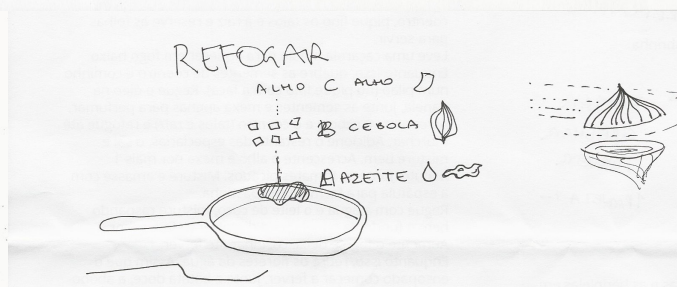 REFOGAR
ALHO C ALHO
B CEBOLA
A AZEITE